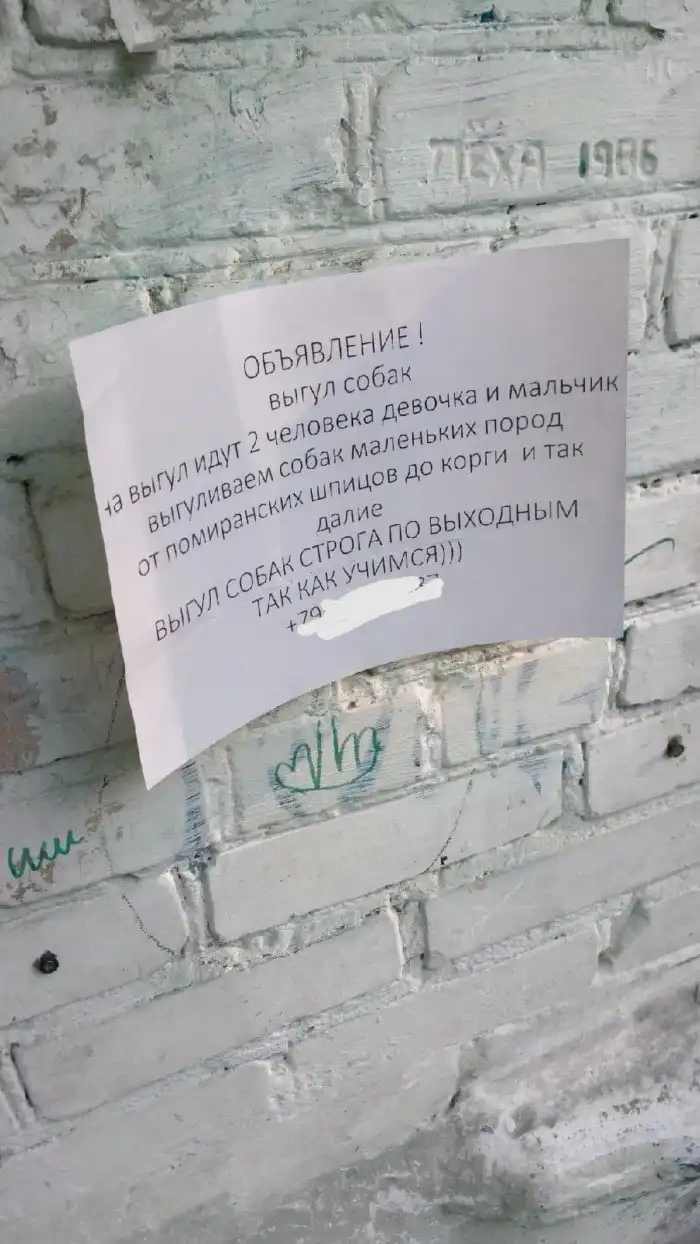 ЛЁХА 1986
ОБЪЯВЛЕНИЕ !
выгул собак
на выгул идут 2 человека девочка и мальчик
выгуливаем собак маленьких пород
от помиранских шпицов до корги и так
далие
ВЫГУЛ СОБАК СТРОГА ПО ВЫХОДНЫМ
ТАК КАК УЧИМСЯ)))
+79